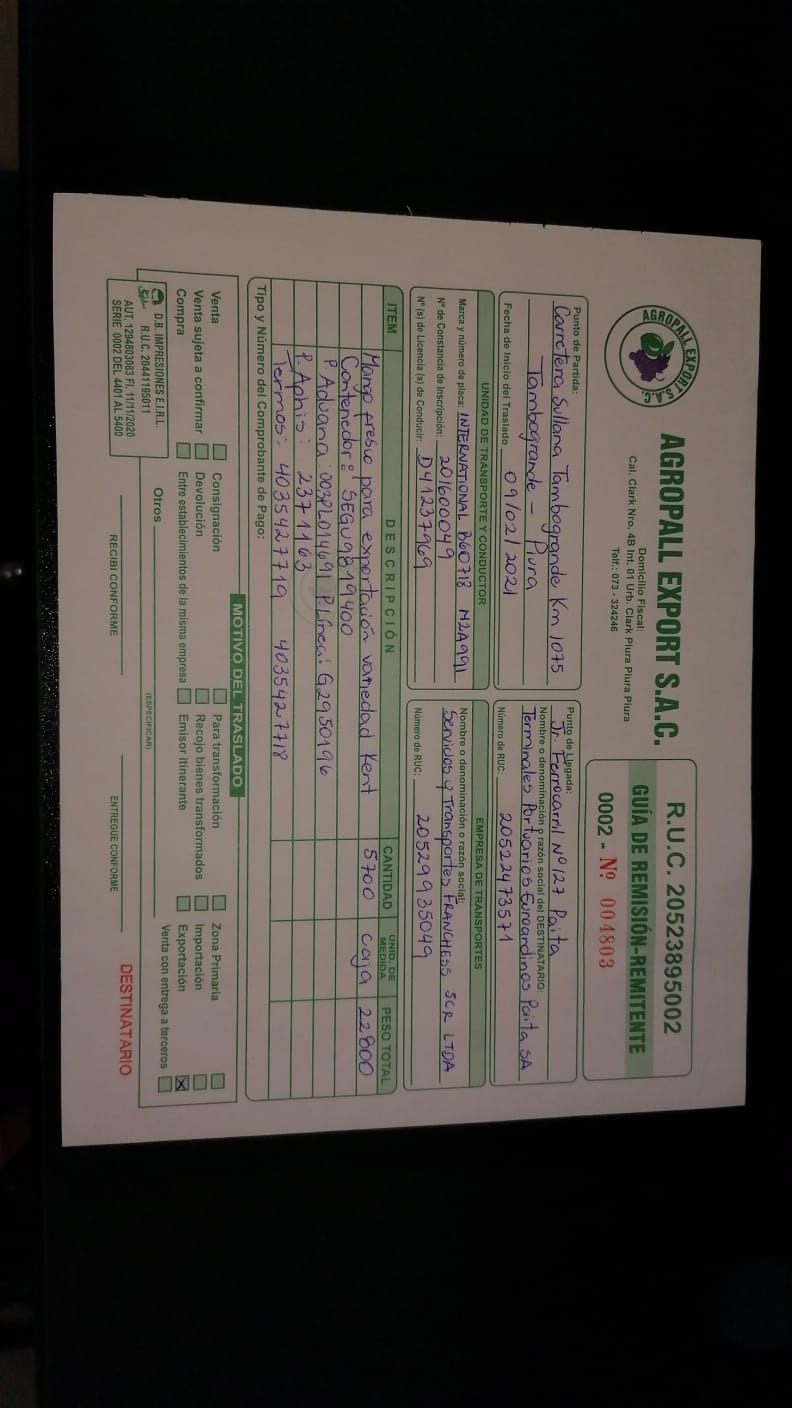 AGROPALL EXPORT S.A.C.
AGROPALL EXPORT S.A.C.
Domicilio Fiscal:
Cal. Clark Nro. 4B Int. 01 Urb. Clark Piura Piura Piura
Telf.: 073 - 324246
R.U.C. 20523895002
GUÍA DE REMISIÓN-REMITENTE
0002 - Nº 004803
Punto de Partida:
Carretera Sullana Tambogrande Km 1075
Tambogrande - Piura
Fecha de Inicio del Traslado 09/02/2021
Punto de Llegada:
Jr. Ferrocarril Nº 127 Paita
Nombre o denominación o razón social del DESTINATARIO:
Terminales Portuarios Euroandinos Paita SA
Número de RUC: 20522473571
UNIDAD DE TRANSPORTE Y CONDUCTOR
Marca y número de placa: INTERNATIONAL B6O718 M2A991
Nº de Constancia de Inscripción: 201600049
Nº (s) de Licencia (s) de Conducir: D41237969
EMPRESA DE TRANSPORTES
Nombre o denominación o razón social:
Servicios y Transportes FRANCHESS SCR LTDA
Número de RUC: 20529935049
ITEM DESCRIPCIÓN CANTIDAD UNID. DE MEDIDA PESO TOTAL
Mango fresco para exportación variedad Kent 5700 caja 22800
Contenedor: SEGU9819400
P. Aduana: 003PL014691 P. Línea: G2950196
P. Aphis: 2371163
Termos: 4035427719 4035427718
Tipo y Número del Comprobante de Pago:
MOTIVO DEL TRASLADO
Venta Consignación Para transformación Zona Primaria
Venta sujeta a confirmar Devolución Recojo bienes transformados Importación
Compra Entre establecimientos de la misma empresa Emisor itinerante Exportación X
Otros Venta con entrega a terceros
(ESPECIFICAR)
D.B. IMPRESIONES E.I.R.L.
R.U.C. 20441195011
AUT. 1294803083 F.I. 11/11/2020
SERIE 0002 DEL 4401 AL 5400
RECIBI CONFORME ENTREGUE CONFORME
DESTINATARIO